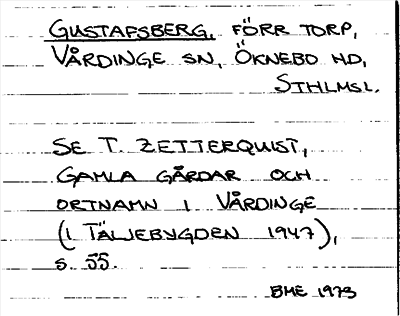 GUSTAFSBERG, FÖRR TORP,
VÅRDINGE SN, ÖKNEBO HD,
STHLMSL.
SE T. ZETTERQUIST,
GAMLA GÅRDAR OCH
ORTNAMN I VÅRDINGE
(I TÄLJEBYGDEN 1947),
S. 55.
BME 1973